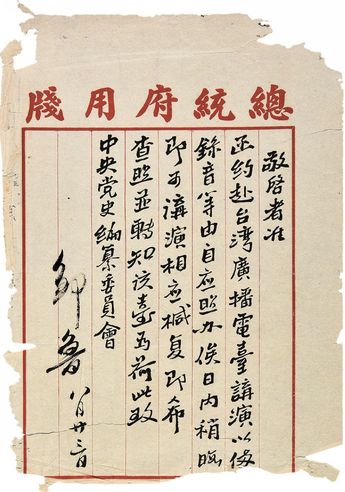 總統府用牋
敬啓者准
函约赴台湾廣播電臺講演以俻
錄音等由自应照办俟日内稍暇
即可講演相应椷复即希
查照並轉知该臺為荷此致
中央党史编纂委員會
鄒魯 八月廿三日